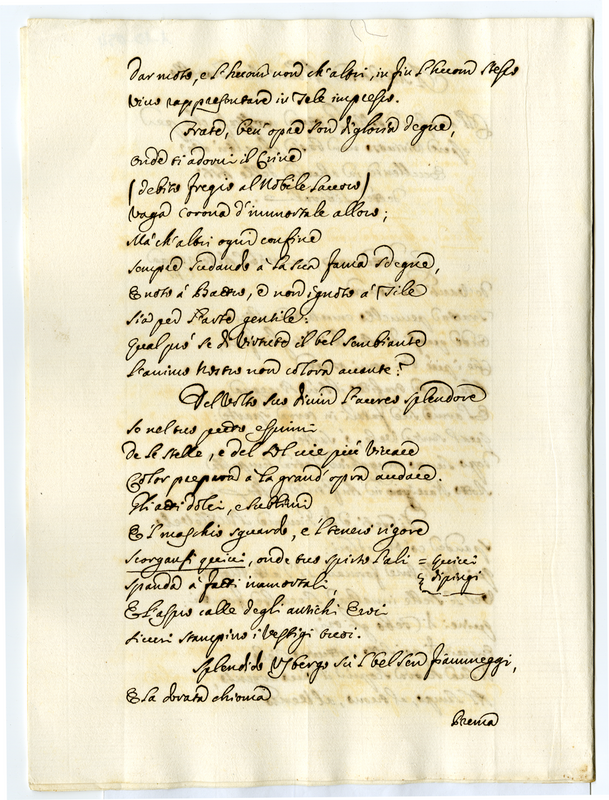 dar moto, e l'huom non ch'altri, in fin l'huom stesso
vivo rappresentare in tele impresso.
Frate, ben' opre son di gloria degne,
onde ti adorni il Crine
(debito fregio al Nobile lavoro)
vaga corona d'immortale alloro;
Ma ch'altri ogni confine
sempre sudando à la sua fama sdegne,
E noto à Battro, e non ignoto à Tile
sia per l'arte gentile:
qual prò se di virtute il bel sembiante
l'animo nostro non colora avante?
Del Volto suo divin l'aureo splendore
io nel tuo petto esprimi
de le stelle, e del sol vie più vivace
Color prepara à la grand' opra audace.
Gli atti dolci, e sublimi
E'l maschio sguardo, e'l tenero vigore
scorgansi quivi, onde tuo spirto l'ali = quivi
spanda à fatti immortali, dipingi
E l'aspro calle degli antichi Eroi
sicuri stampino i vestigi tuoi.
Splendido Usbergo sù'l bel sen fiammeggi,
E la dorata chioma
prema